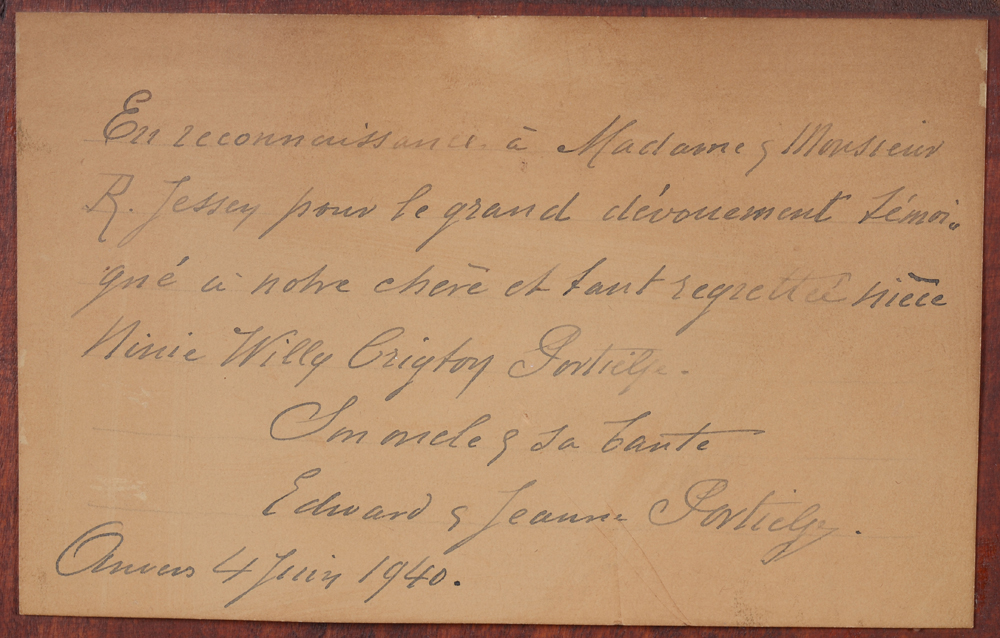 En reconnaissance à Madame & Monsieur
R. Jessey pour le grand dévouement témoi-
gné à notre chère et tant regrettée nièce
Ninie Willy Crigton Portielje.
Son oncle & sa tante
Edward & Jeanne Portielje.
Anvers 4 Juin 1940.